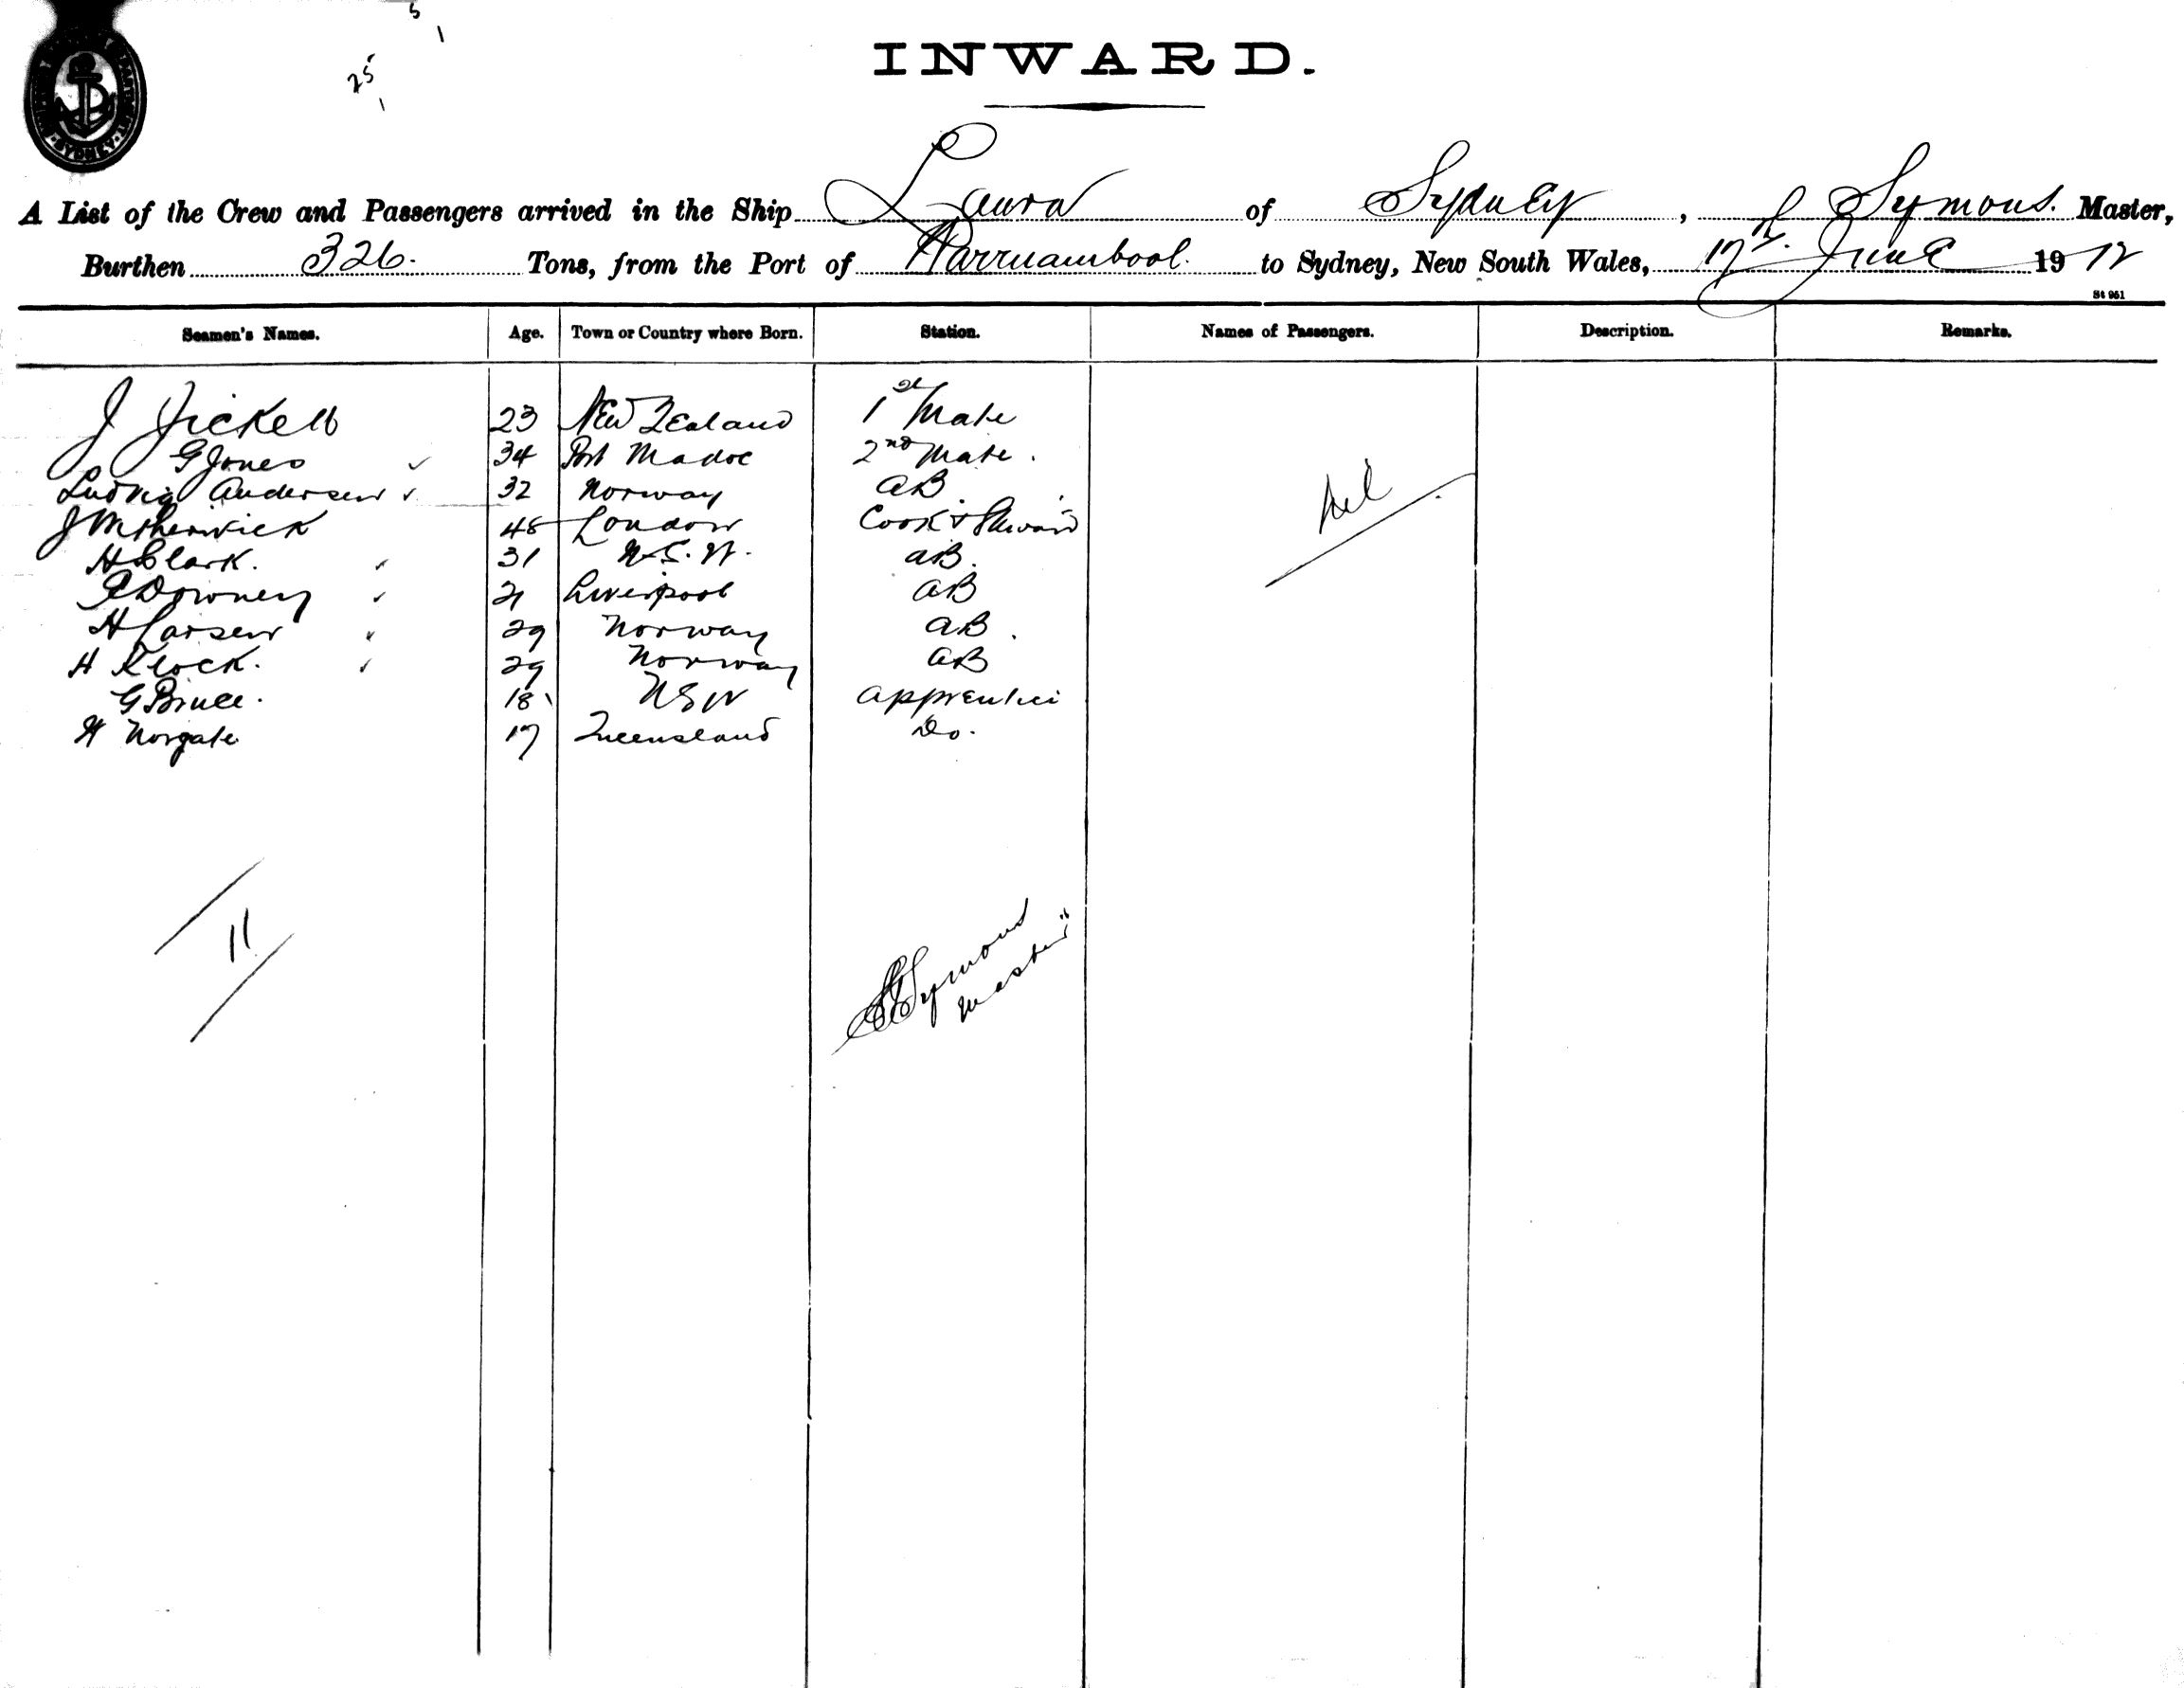 5
1
25
1
SYDNEY
INWARD.
A List of the Crew and Passengers arrived in the Ship Laura of Sydney, Symons. Master,
Burthen 326. Tons, from the Port of Warrnambool. to Sydney, New South Wales, 17th June 1912
St 961
Seamen's Names. Age. Town or Country where Born. Station. Names of Passengers. Description. Remarks.
J Jickell 23 New Zealand 1st Mate
G Jones 34 Port Madoc 2nd Mate.
Ludvig Andersen 32 Norway AB
J 48 London Cook & Steward
Nil
H Clark. 31 N.S.W. AB.
Downey 21 Liverpool AB
H Larsen 29 Norway AB.
H Klock. 29 Norway AB
G Bruce. 18 NSW Apprentice
H Norgate 17 Queensland Do.
11
Symons
Master